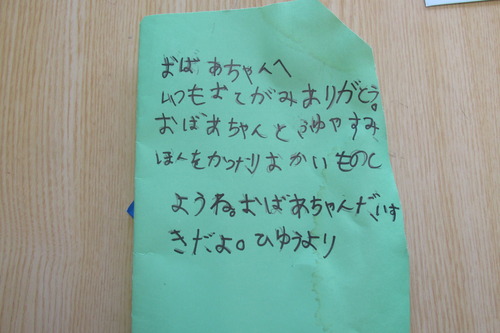 おばあちゃんへ
いつもおてがみありがとう。
おばあちゃんとふゆやすみ
ほんをかったりおかいものし
ようね。おばあちゃんだいす
きだよ。ひゆうより